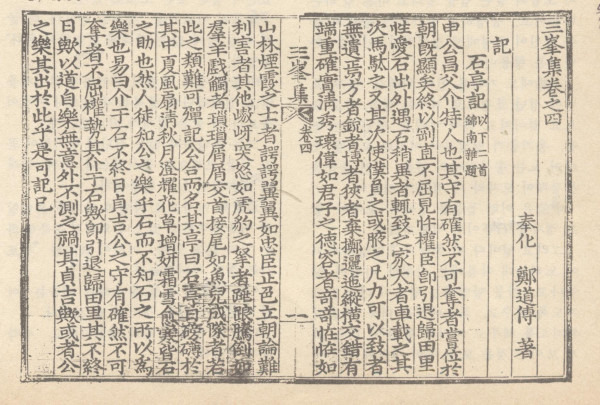 三峯集卷之四
奉化 鄭道傳 著
記
石亭記 以下二首
錦南雜題
申公昌父介特人也其守有確然不可奪者嘗位於
朝旣顯矣終以剛直不屈見忤權臣卽引退歸田里
性愛石出外遇石稍異者輒致之家大者車載之其
次馬駄之又其次使僕負之或腋之凡力可以致者
無遺焉方者銳者博者狹者棄擲邐迤縱橫交錯有
端重確實淸秀瓌偉如君子之德容者奇奇怪怪如
三峯集 卷四 一
山林煙霞之士者諤諤翼翼如忠臣正色立朝論難
利害者其他巇岈突怒如虎豹之拏者跳踉騰倒如
群羊戲觸者瑣瑣屑屑交首接尾如魚兒成隊者若
此之類難可殫記公合而名其亭曰石亭日磅礴於
其中夏風扇淸秋月澄耀花草增姸霜雪愈皆石
之助也然人徒知公之樂乎石而不知石之所以爲
樂也易曰介于石不終日貞吉公之守有確然不可
奪者不屈權勢其介于石歟卽引退歸田里其不終
日歟以道自樂無意外不測之禍其貞吉歟或者公
之樂其出於此乎是可記已